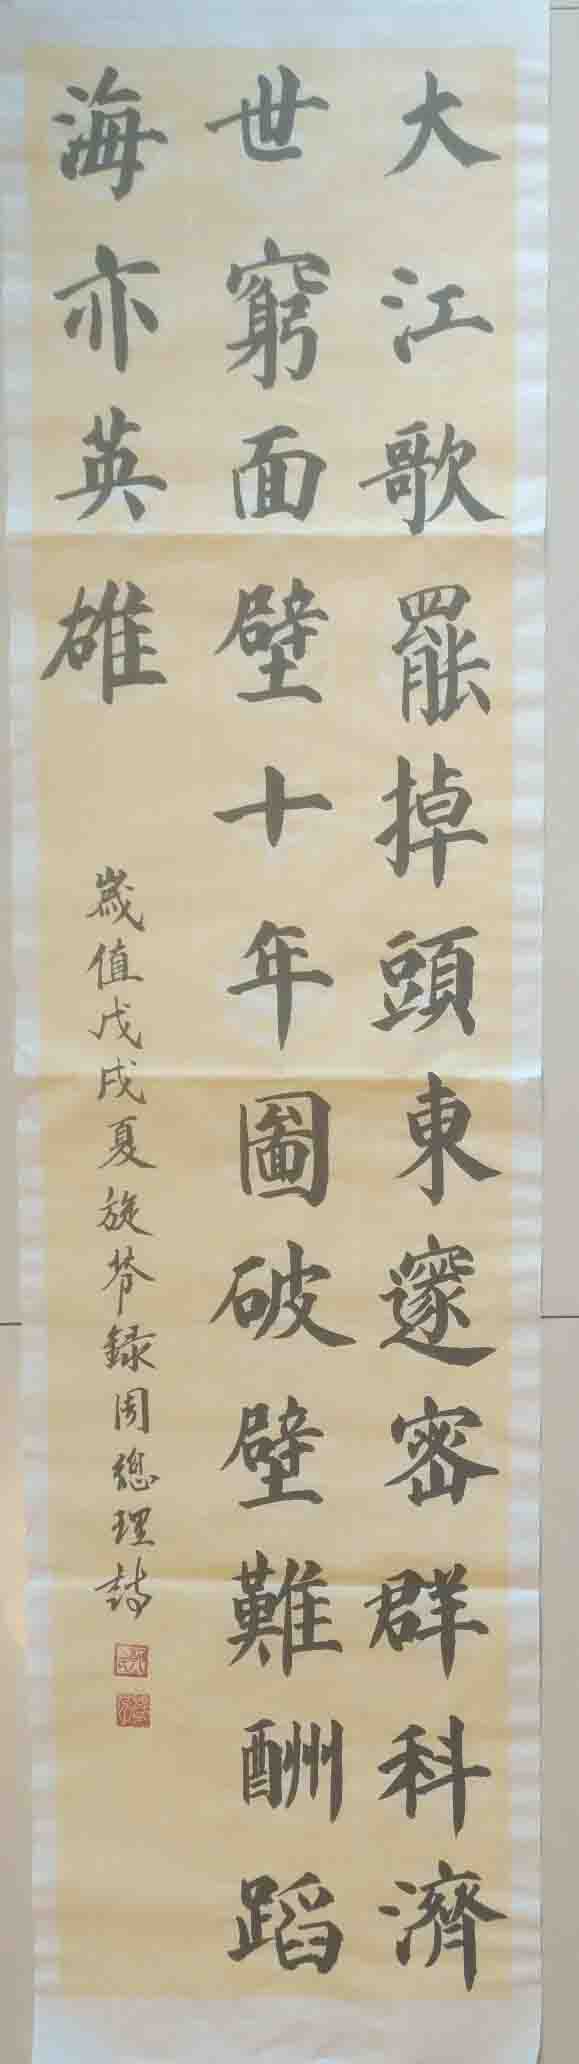 大江歌罷掉頭東邃密群科濟
世窮面壁十年圖破壁難酬蹈
海亦英雄
歲值戊戌夏旋苓錄周總理詩